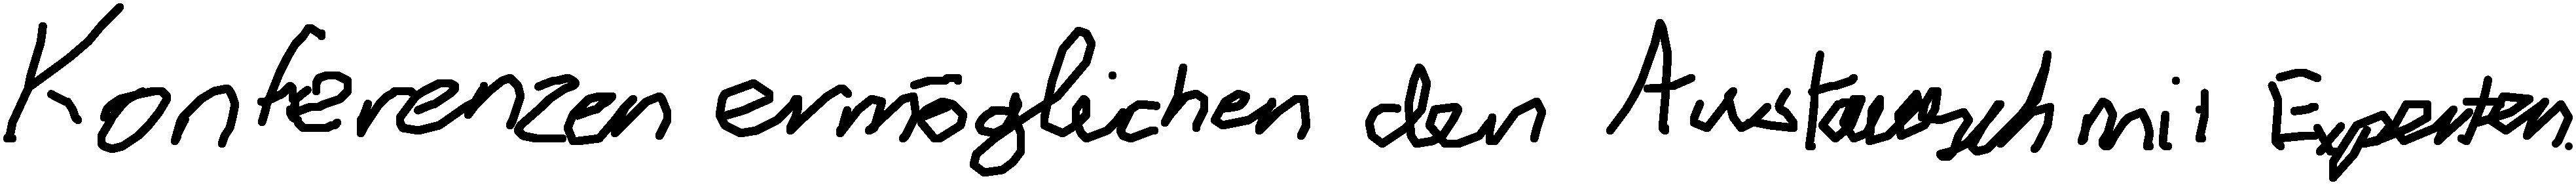 Konferenzen ermöglichen den Austausch mit Experten.